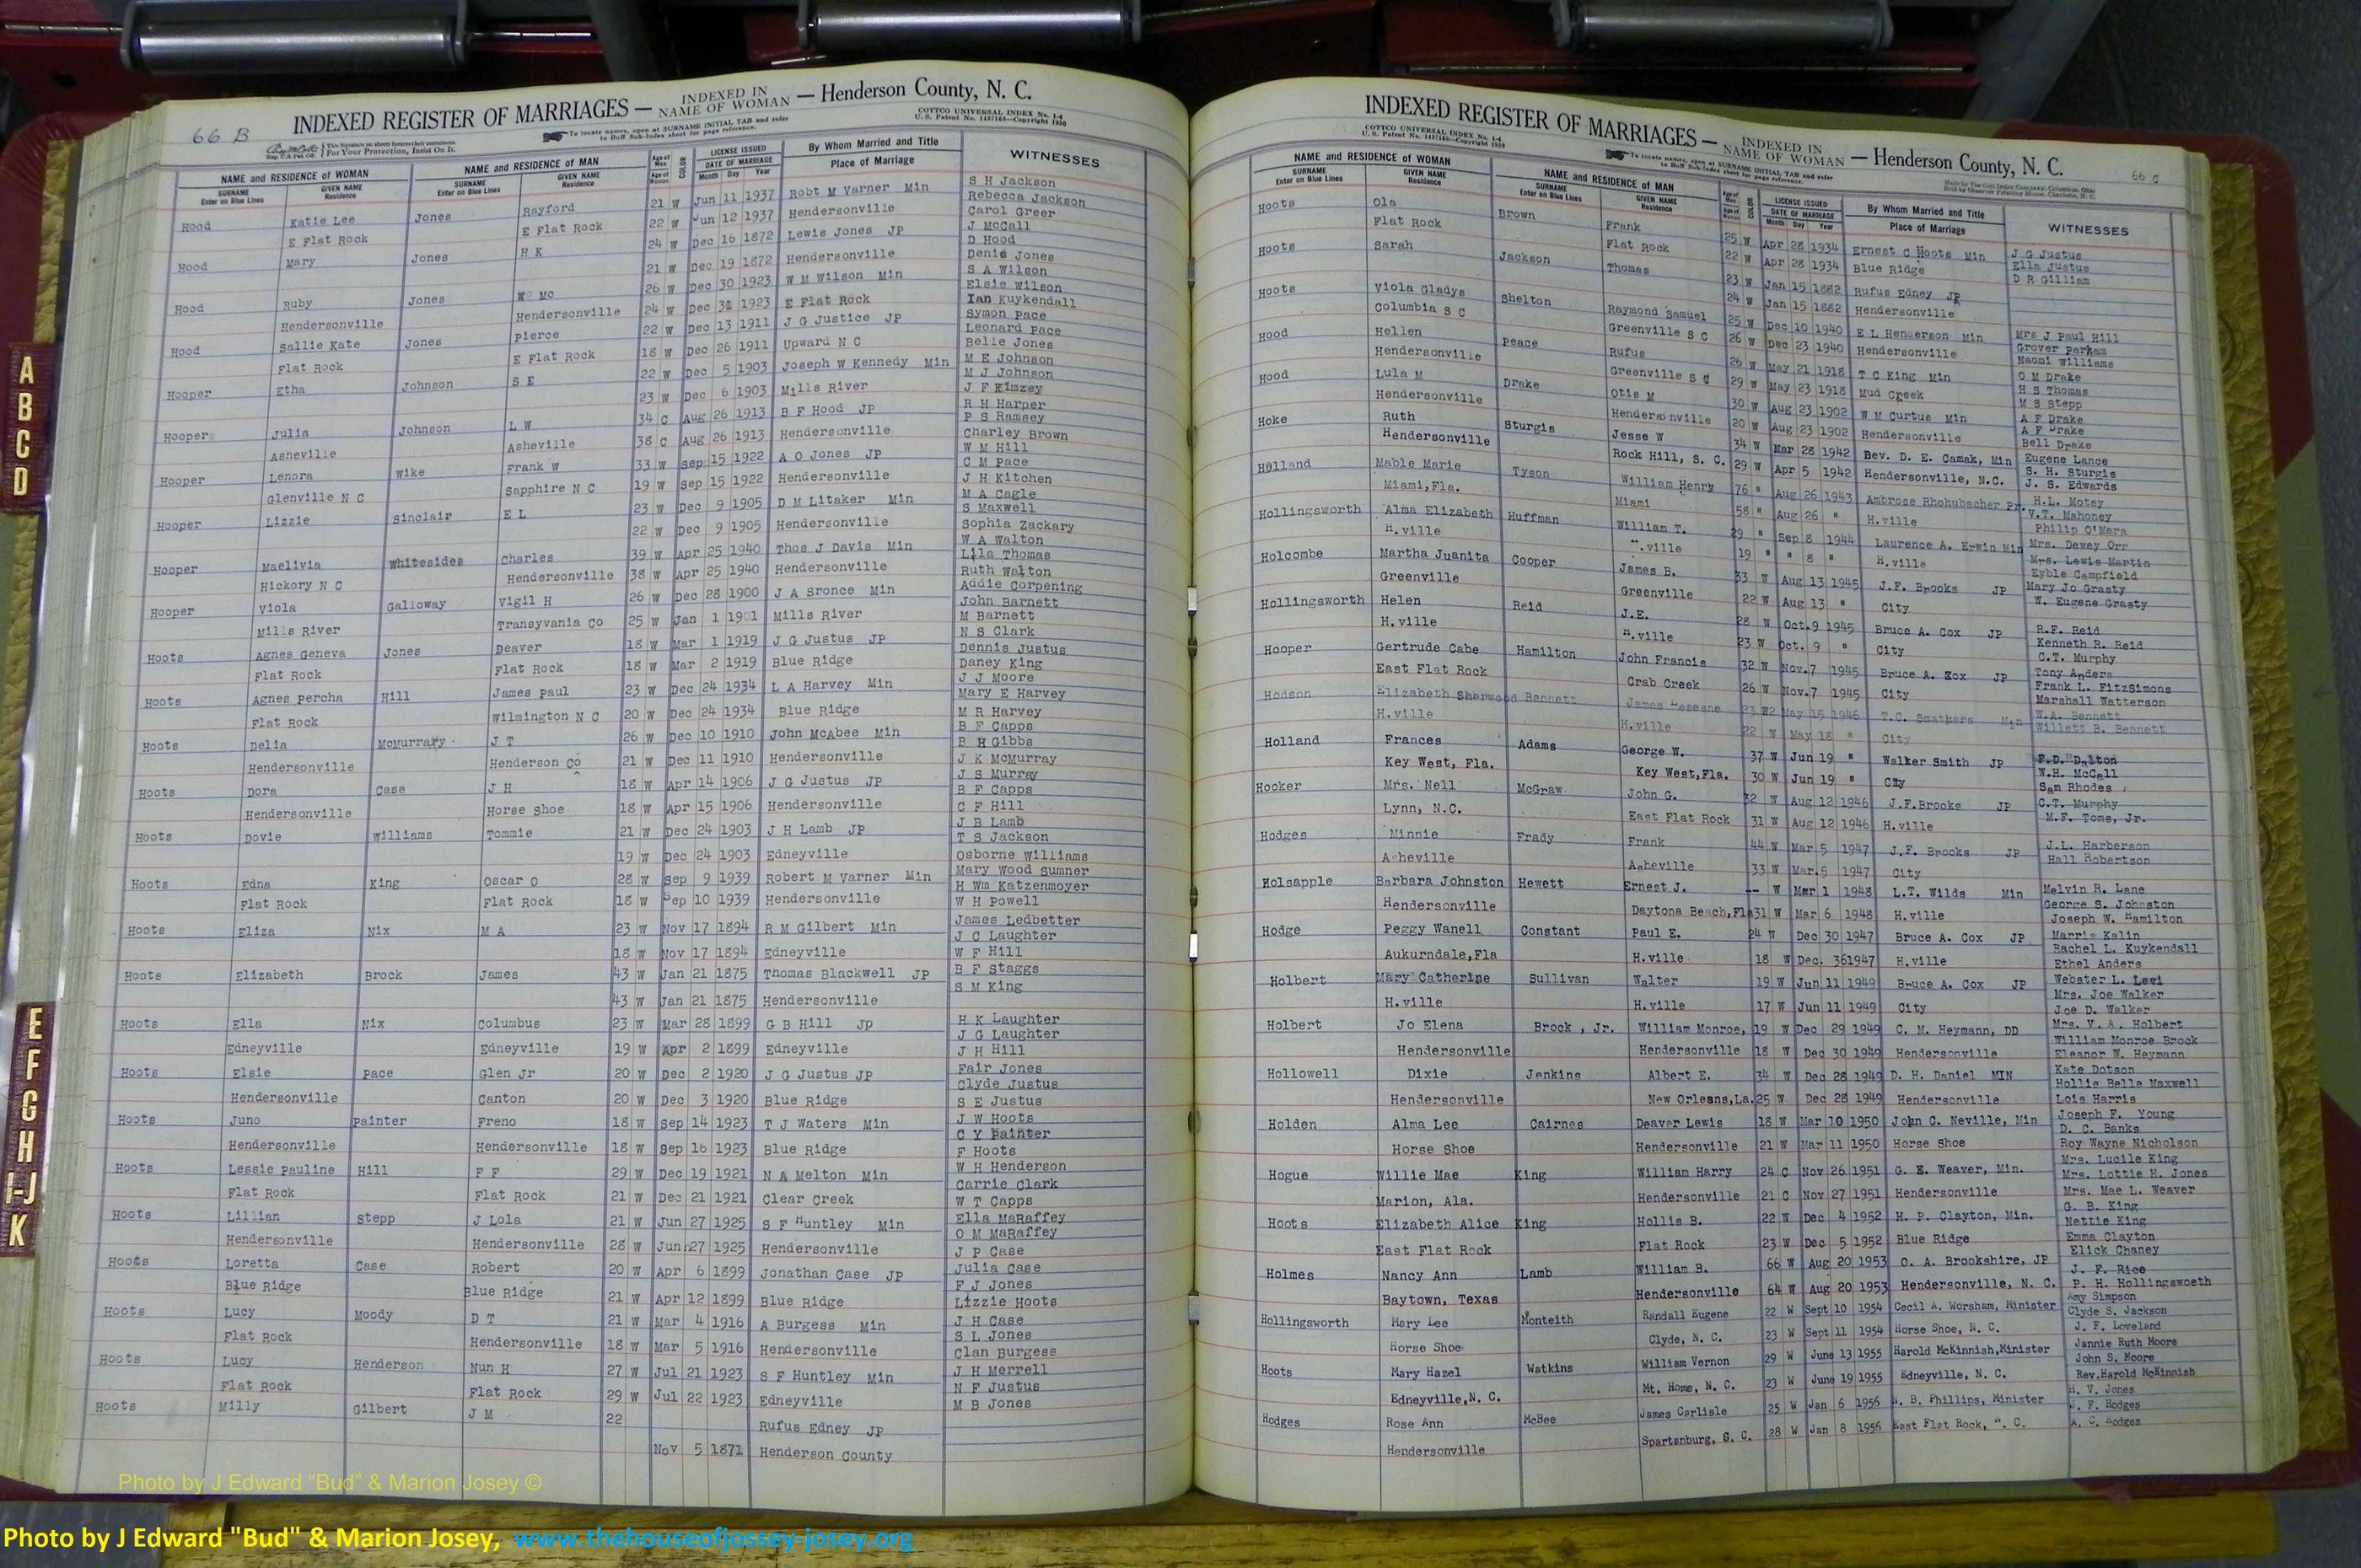 66 B
INDEXED REGISTER OF MARRIAGES — INDEXED IN NAME OF WOMAN — Henderson County, N. C.
To locate names, open at SURNAME INITIAL TAB and refer to Buff Sub-Index sheet for page reference.
COTTCO UNIVERSAL INDEX No. 1-4
U. S. Patent No. 1437165—Copyright 1930
NAME and RESIDENCE OF WOMAN NAME and RESIDENCE OF MAN Age of Man Age of Woman COLOR LICENSE ISSUED DATE OF MARRIAGE By Whom Married and Title Place of Marriage WITNESSES
SURNAME Enter on Blue Lines GIVEN NAME Residence SURNAME Enter on Blue Lines GIVEN NAME Residence Month Day Year
Hood Katie Lee Jones Rayford 21 W Jun 11 1937 Robt M Varner Min S H Jackson
Rebecca Jackson
E Flat Rock E Flat Rock 22 W Jun 12 1937 Hendersonville Carol Greer
Hood Mary Jones H K 24 W Dec 16 1872 Lewis Jones JP J McCall
D Hood
21 W Dec 19 1872 Hendersonville Denis Jones
Hood Ruby Jones W Mc 26 W Dec 30 1923 W M Wilson Min S A Wilson
Elsie Wilson
Hendersonville Hendersonville 24 W Dec 31 1923 E Flat Rock Ian Kuykendall
Hood Sallie Kate Jones Pierce 22 W Dec 13 1911 J G Justice JP Symon Pace
Leonard Pace
Flat Rock E Flat Rock 18 W Dec 26 1911 Upward N C Belle Jones
Hooper Etha Johnson S E 22 W Dec 5 1903 Joseph W Kennedy Min M E Johnson
M J Johnson
23 W Dec 6 1903 Mills River J F Kimzey
Hooper Julia Johnson L W 34 C Aug 26 1913 B F Hood JP R H Harper
P S Ramsey
Asheville Asheville 38 C Aug 26 1913 Hendersonville Charley Brown
Hooper Lenora Wike Frank W 33 W Sep 15 1922 A O Jones JP W M Hill
C M Pace
Glenville N C Sapphire N C 19 W Sep 15 1922 Hendersonville J H Kitchen
Hooper Lizzie Sinclair E L 23 W Dec 9 1905 D M Litaker Min M A Cagle
S Maxwell
22 W Dec 9 1905 Hendersonville Sophia Zackary
Hooper Maelivia Whitesides Charles 39 W Apr 25 1940 Thos J Davis Min W A Walton
Lila Thomas
Hickory N C Hendersonville 38 W Apr 25 1940 Hendersonville Ruth Walton
Hooper Viola Galloway Vigil H 26 W Dec 28 1900 J A Bronce Min Addie Corpening
John Barnett
Mills River Transyvania Co 25 W Jan 1 1901 Mills River M Barnett
Hoots Agnes Geneva Jones Deaver 18 W Mar 1 1919 J G Justus JP N S Clark
Dennis Justus
Flat Rock Flat Rock 18 W Mar 2 1919 Blue Ridge Daney King
Hoots Agnes Percha Hill James Paul 23 W Dec 24 1934 L A Harvey Min J J Moore
Mary E Harvey
Flat Rock Wilmington N C 20 W Dec 24 1934 Blue Ridge M R Harvey
Hoots Delia McMurray J T 26 W Dec 10 1910 John McAbee Min B F Capps
B H Gibbs
Hendersonville Henderson Co 21 W Dec 11 1910 Hendersonville J K McMurray
Hoots Dora Case J H 18 W Apr 14 1906 J G Justus JP J S Murray
B F Capps
Hendersonville Horse Shoe 18 W Apr 15 1906 Hendersonville C F Hill
Hoots Dovie Williams Tommie 21 W Dec 24 1903 J H Lamb JP J B Lamb
T S Jackson
19 W Dec 24 1903 Edneyville Osborne Williams
Hoots Edna King Oscar O 28 W Sep 9 1939 Robert M Varner Min Mary Wood Sumner
H Wm Katzenmoyer
Flat Rock Flat Rock 18 W Sep 10 1939 Hendersonville W H Powell
Hoots Eliza Nix M A 23 W Nov 17 1894 R M Gilbert Min James Ledbetter
J C Laughter
18 W Nov 17 1894 Edneyville W F Hill
Hoots Elizabeth Brock James 43 W Jan 21 1875 Thomas Blackwell JP B F Staggs
S M King
43 W Jan 21 1875 Hendersonville
Hoots Ella Nix Columbus 23 W Mar 28 1899 G B Hill Jp H K Laughter
J G Laughter
Edneyville Edneyville 19 W Apr 2 1899 Edneyville J H Hill
Hoots Elsie Pace Glen Jr 20 W Dec 2 1920 J G Justus JP Fair Jones
Clyde Justus
Hendersonville Canton 20 W Dec 3 1920 Blue Ridge S E Justus
Hoots Juno Painter Freno 18 W Sep 14 1923 T J Waters Min J W Hoots
C Y Painter
Hendersonville Hendersonville 18 W Sep 16 1923 Blue Ridge F Hoots
Hoots Lessie Pauline Hill F F 29 W Dec 19 1921 N A Melton Min W H Henderson
Carrie Clark
Flat Rock Flat Rock 21 W Dec 21 1921 Clear Creek W T Capps
Hoots Lillian Stepp J Lola 21 W Jun 27 1925 S F Huntley Min Ella MaRaffey
O M MaRaffey
Hendersonville Hendersonville 28 W Jun 27 1925 Hendersonville J P Case
Hoots Loretta Case Robert 20 W Apr 6 1899 Jonathan Case JP Julia Case
F J Jones
Blue Ridge Blue Ridge 21 W Apr 12 1899 Blue Ridge Lizzie Hoots
Hoots Lucy Moody D T 21 W Mar 4 1916 A Burgess Min J H Case
S L Jones
Flat Rock Hendersonville 18 W Mar 5 1916 Hendersonville Clan Burgess
Hoots Lucy Henderson Nun H 27 W Jul 21 1923 S F Huntley Min J H Merrell
N F Justus
Flat Rock Flat Rock 29 W Jul 22 1923 Edneyville M B Jones
Hoots Milly Gilbert J M 22 Rufus Edney JP
Nov 5 1871 Henderson County
INDEXED REGISTER OF MARRIAGES — INDEXED IN NAME OF WOMAN — Henderson County, N. C.
COTTCO UNIVERSAL INDEX No. 1-4
U. S. Patent No. 1437165—Copyright 1930
To locate names, open at SURNAME INITIAL TAB and refer to Buff Sub-Index sheet for page reference.
66 C
NAME and RESIDENCE OF WOMAN NAME and RESIDENCE OF MAN Age of Man Age of Woman COLOR LICENSE ISSUED DATE OF MARRIAGE By Whom Married and Title Place of Marriage WITNESSES
SURNAME Enter on Blue Lines GIVEN NAME Residence SURNAME Enter on Blue Lines GIVEN NAME Residence Month Day Year
Hoots Ola Brown Frank 25 W Apr 28 1934 Ernest C Hoots Min J G Justus
Ella Justus
Flat Rock Flat Rock 22 W Apr 28 1934 Blue Ridge D R Gilliam
Hoots Sarah Jackson Thomas 23 W Jan 15 1882 Rufus Edney JP
24 W Jan 15 1882 Hendersonville
Hoots Viola Gladys Shelton Raymond Samuel 25 W Dec 10 1940 E L Henderson Min Mrs J Paul Hill
Grover Parham
Columbia S C Greenville S C 26 W Dec 23 1940 Hendersonville Naomi Williams
Hood Hellen Peace Rufus 26 W May 21 1918 T C King Min O M Drake
H S Thomas
Hendersonville Greenville S C 29 W May 23 1918 Mud Creek M S Stepp
Hood Lula M Drake Otis M 30 W Aug 23 1902 W M Curtus Min A F Drake
A F Drake
Hendersonville Hendersonville 20 W Aug 23 1902 Hendersonville Bell Drake
Hoke Ruth Sturgis Jesse W 34 W Mar 28 1942 Bev. D. E. Camak, Min Eugene Lance
S. H. Sturgis
Hendersonville Rock Hill, S. C. 29 W Apr 5 1942 Hendersonville, N.C. J. S. Edwards
Holland Mable Marie Tyson William Henry 76 " Aug 26 1943 Ambrose Rhohubacher Pr. H.L. Motey
V.T. Mahoney
Miami, Fla. Miami 58 " Aug 26 " H.ville Philip O'Mara
Hollingsworth Alma Elizabeth Huffman William T. 29 " Sep 8 1944 Laurence A. Erwin Min Mrs. Dewey Orr
Mrs. Lewis Martin
H.ville ".ville 19 " " 8 " H.ville Eyble Campfield
Holcombe Martha Juanita Cooper James B. 33 W Aug 13 1945 J.F. Brooks JP Mary Jo Grasty
W. Eugene Grasty
Greenville Greenville 22 W Aug 13 " City
Hollingsworth Helen Reid J.E. 28 W Oct.9 1945 Bruce A. Cox JP R.F. Reid
Kenneth R. Reid
H.ville H.ville 23 W Oct. 9 " City C.T. Murphy
Hooper Gertrude Cabe Hamilton John Francis 32 W Nov.7 1945 Bruce A. Cox JP Tony Anders
Frank L. FitzSimons
East Flat Rock Crab Creek 26 W Nov.7 1945 City Marshall Watterson
Hodson Elizabeth Sherwood Bennett James 23 W2 May 15 1946 T.C. Smathers Min W.A. Bennett
Willett B. Bennett
H.ville H.ville 22 W May 18 " City
Holland Frances Adams George W. 37 W Jun 19 " Walker Smith JP F.D. Dalton
W.H. McCall
Key West, Fla. Key West,Fla. 30 W Jun 19 " City Sam Rhodes
Hooker Mrs. Nell McGraw John G. 32 W Aug 12 1946 J.F.Brooks JP C.T. Murphy
M.F. Toms, Jr.
Lynn, N.C. East Flat Rock 31 W Aug 12 1946 H.ville
Hodges Minnie Frady Frank 44 W Mar 5 1947 J.F. Brooks JP J.L. Harberson
Hall Robertson
Asheville Asheville 33 W Mar.5 1947 City
Holsapple Barbara Johnston Hewett Ernest J. -- W Mar 1 1948 L.T. Wilds Min Melvin R. Lane
George S. Johnston
Hendersonville Daytona Beach,Fla 31 W Mar 6 1948 H.ville Joseph W. Hamilton
Hodge Peggy Wanell Constant Paul E. 24 W Dec 30 1947 Bruce A. Cox JP Marris Kalin
Rachel L. Kuykendall
Aukurndale,Fla H.ville 18 W Dec. 361947 H.ville Ethel Anders
Holbert Mary Catherine Sullivan Walter 19 W Jun 11 1949 Bruce A. Cox JP Webster L. Levi
Mrs. Joe Walker
H.ville H.ville 17 W Jun 11 1949 City Joe D. Walker
Holbert Jo Elena Brock , Jr. William Monroe, 19 W Dec 29 1949 C. M. Heymann, DD Mrs. V. A. Holbert
William Monroe Brock
Hendersonville Hendersonville 18 W Dec 30 1949 Hendersonville Eleanor W. Heymann
Hollowell Dixie Jenkins Albert E. 34 W Dec 28 1949 D. H. Daniel MIN Kate Dotson
Hollie Belle Maxwell
Hendersonville New Orleans,La. 25 W Dec 28 1949 Hendersonville Lois Harris
Holden Alma Lee Cairnes Deaver Lewis 18 W Mar 10 1950 John C. Neville, Min Joseph F. Young
D. C. Banks
Horse Shoe Hendersonville 21 W Mar 11 1950 Horse Shoe Roy Wayne Nicholson
Hogue Willie Mae King William Harry 24 C Nov 26 1951 G. E. Weaver, Min. Mrs. Lucile King
Mrs. Lottie H. Jones
Marion, Ala. Hendersonville 21 C Nov 27 1951 Hendersonville Mrs. Mae L. Weaver
Hoots Elizabeth Alice King Hollis B. 22 W Dec 4 1952 H. P. Clayton, Min. G. B. King
Nettie King
East Flat Rock Flat Rock 23 W Dec 5 1952 Blue Ridge Emma Clayton
Holmes Nancy Ann Lamb William B. 66 W Aug 20 1953 O. A. Brookshire, JP Elick Chaney
J. F. Rice
Baytown, Texas Hendersonville 64 W Aug 20 1953 Hendersonville, N. C. P. H. Hollingsworth
Hollingsworth Mary Lee Monteith Randall Eugene 22 W Sept 10 1954 Cecil A. Worsham, Minister Amy Simpson
Clyde S. Jackson
Horse Shoe Clyde, N. C. 23 W Sept 11 1954 Horse Shoe, N. C. J. F. Loveland
Hoots Mary Hazel Watkins William Vernon 29 W June 13 1955 Harold McKinnish,Minister Jannie Ruth Moore
John S. Moore
Edneyville,N.C. Mt. Home, N. C. 23 W June 19 1955 Edneyville, N. C. Rev.Harold McKinnish
Hodges Rose Ann McBee James Carlisle 25 W Jan 6 1956 W. B. Phillips, Minister H. V. Jones
J. F. Hodges
Hendersonville Spartanburg, S. C. 28 W Jan 8 1956 East Flat Rock, N. C. A. C. Hodges
A
B
C
D
E
F
G
H
I-J
K
Photo by J Edward “Bud” & Marion Josey ©
Photo by J Edward "Bud" & Marion Josey, www.thehouseofjossey-josey.org